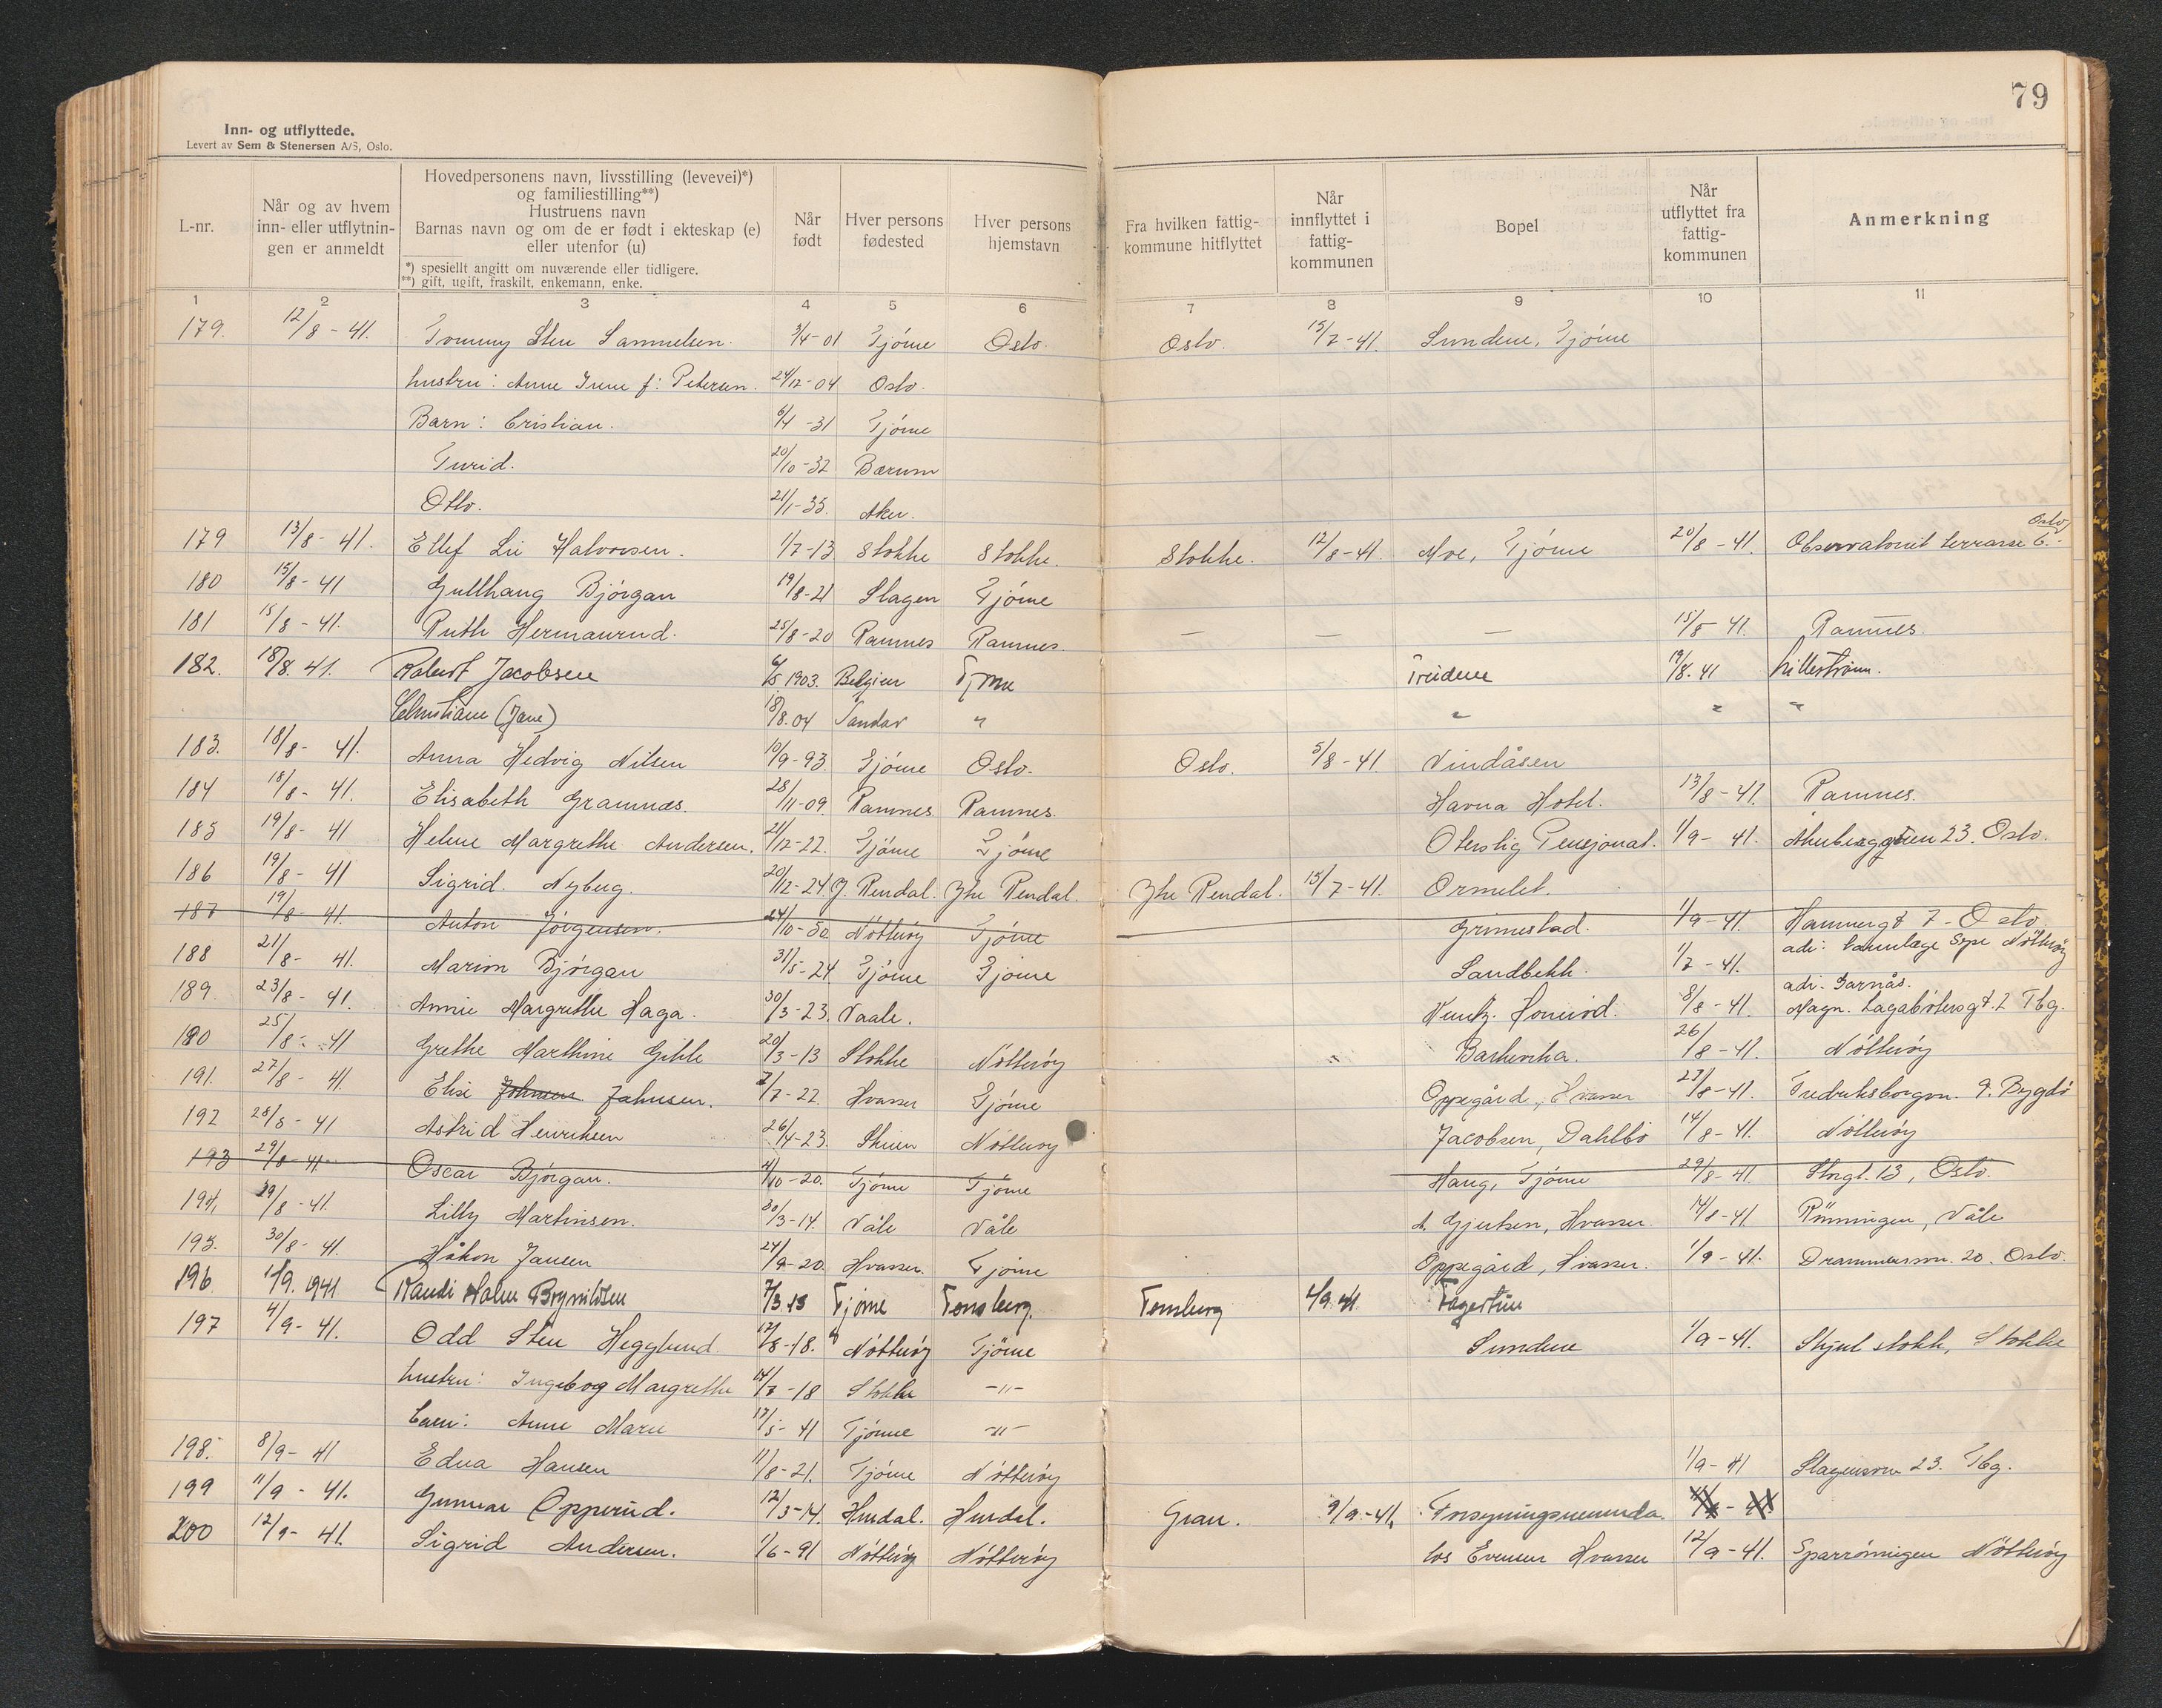 79
Inn- og utflyttede.
Levert av Sem & Stenersen A/S, Oslo.
L-nr.
Når og av hvem inn- eller utflytnin-gen er anmeldt
Hovedpersonens navn, livsstilling (levevei)*)
og familiestilling**)
Hustruens navn
Barnas navn og om de er født i ekteskap (e)
eller utenfor (u)
*) spesiellt angitt om nuværende eller tidligere.
**) gift, ugift, fraskilt, enkemann, enke.
Når født
Hver persons fødested
Hver persons hjemstavn
Fra hvilken fattig-kommune hitflyttet
Når innflyttet i fattig-kommunen
Bopel
Når utflyttet fra fattig-kommunen
Anmerkning
1 2 3 4 5 6 7 8 9 10 11
179. 12/8 - 41. Tommy Sten Samuelsen. 3/4-01 Tjöme Oslo. Oslo. 15/7-41. Sundene, Tjöme
hustru: Anne Irene f: Petersen. 24/12-04 Oslo.
Barn: Cristian. 6/4-31 Tjöme
Turid. 20/10-32 Bærum
Otto. 21/1-35. Aker.
179 13/8 - 41. Ellef Lie Halvorsen. 1/7-13 Stokke Stokke. Stokke. 12/8-41. Moe, Tjöme 20/8-41. Observatorie terrasse 6. Oslo
180 15/8 - 41 Gullhaug Björgan 19/8-21 Slagen Tjöme
181 15/8 - 41. Ruth Hermanrud. 25/8-20 Ramnes Ramnes. — — — 15/8-41. Ramnes.
182. 18/8. 41. Robert Jacobsen 6/5 1903. Belgien Tjöme Treidene 19/8. 41 Lillestrøm.
Christiane (Jane) 18/8. 04 Sandar " " " "
183. 18/8 - 41. Anna Hedvig Nilsen 10/9-93 Tjöme Oslo. Oslo. 5/8-41. Vindåsen
184 18/8 - 41. Elisabeth Gramnæs. 28/11-09. Ramnes. Ramnes. Havna Hotel. 13/8-41. Ramnes.
185 19/8 - 41 Helene Margrethe Andersen. 21/12-22. Tjöme Tjöme Oterslig Pensjonat. 1/9-41. Akersbaggien 23. Oslo.
186 19/8 - 41 Sigrid. Nyberg. 20/12-24 Y. Rendal. Ytre Rendal. Ytre Rendal. 15/7-41. Ormelet.
187 19/8 - 41. Anton Jörgensen. 24/10-50 Nötteröy Tjöme Grimestad. 1/9-41. Hammergt 7 - Oslo
188 21/8 - 41. Marion Björgan 31/5-24 Tjöme Tjöme Sandbekk. 1/7-41. adr: Nötteröy
189. 23/8 - 41. Annie Margrethe Haga. 30/3-23. Vaale. 8/8-41. adr. Garnås. Magn. Lagabötersgt. 2 Tbg.
190 25/8 - 41 Grethe Marthine 20/3-13 Stokke Nötteröy Barkevika. 26/8-41. Nötteröy
191. 27/8 - 41. Elise Johnsen Jahnsen. 2/7-22. Hvasser Tjöme Oppegård, Hvasser 23/8-41. Fredriksborgvn. 9. Bygdö
192 28/8 - 41 Astrid Henriksen 26/4-23. Skien Nötteröy Jacobsen, Dahlbo 14/8-41. Nötteröy
193 29/8-41 Oscar Björgan. 4/10-20. Tjöme Tjöme Haug, Tjöme 29/8-41. Storgt. 13, Oslo.
194. 29/8-41. Lilly Martinsen. 30/3-14. Våle Våle A. Gjertsen, Hvasser. 14/8-41 Rönningen, Våle
195. 30/8 - 41. Håkon Jansen 24/9-20. Hvasser. Tjöme Oppegård, Hvasser. 1/9-41. Drammensvn. 20. Oslo.
196. 1/9. 1941 Randi Holm Brynildsen 7/3 13 Tjöme Tønsberg. Tønsberg 4/9. 41. Fagertun
197 4/9 - 41. Odd Sten Hegglund. 12/8-18. Nötteröy Tjöme Sundene 1/9-41. Skjelstokk, Stokke
hustru: Ingebog Margrethe 14/7-18 Stokke —"—
barn: Anne Marie 17/5-41 Tjöme —"—
198. 8/9 - 41 Edna Hansen 11/8-21. Tjöme Nötteröy 1/9-41 Slagensvn 23. Tbg.
199 11/9 - 41. Gunnar Opperud. 12/3-14. Hurdal. Hurdal. Gran. 9/9-41. Forsyningsnemnda.
200 12/9 - 41. Sigrid Andersen. 1/6-91 Nötteröy Nötteröy hos Evensen Hvasser 12/9-41. Sparrömmigen Nötteröy